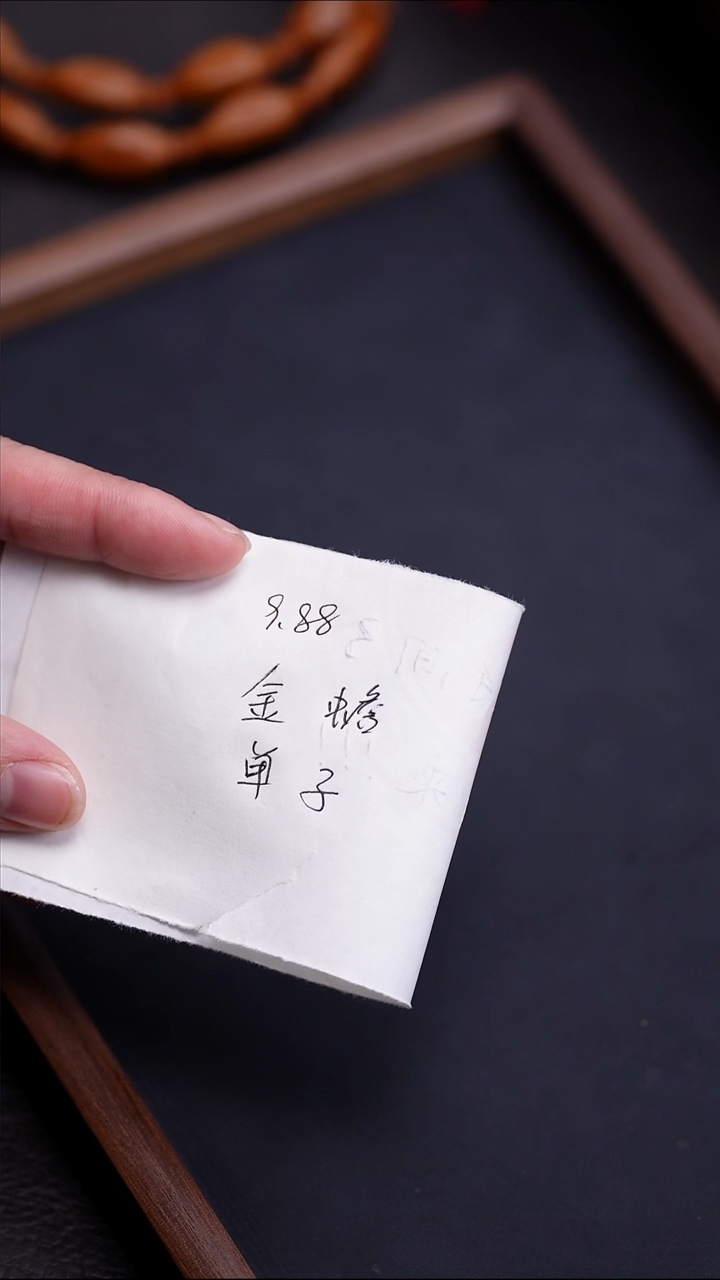 9.88
金蟾
单子